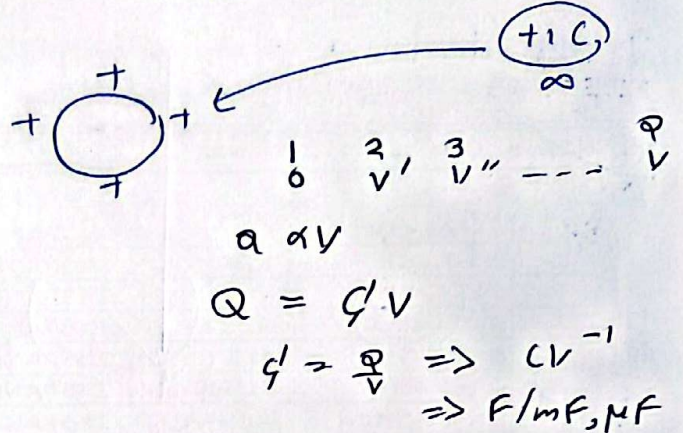 +1 C,
∞
+
+ +
+
1 2 3 Q
0 V' V'' --- V
Q ∝ V
Q = C V
C = Q/V => CV⁻¹
=> F/mF, μF